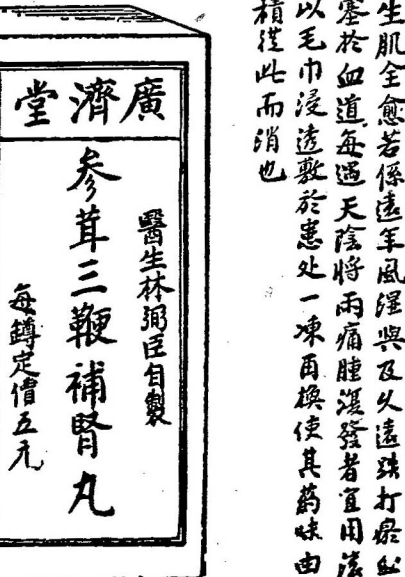 生肌全愈若係遠年風湿與及久遠跌打瘀
塞於血道每遇天陰將雨痛腫復發者宜用
以毛巾浸透敷於患处一凍再換使其葯味由
積從此而消也
廣濟堂
醫生林弼臣自製
参茸三鞭補腎丸
每鐏定價五元